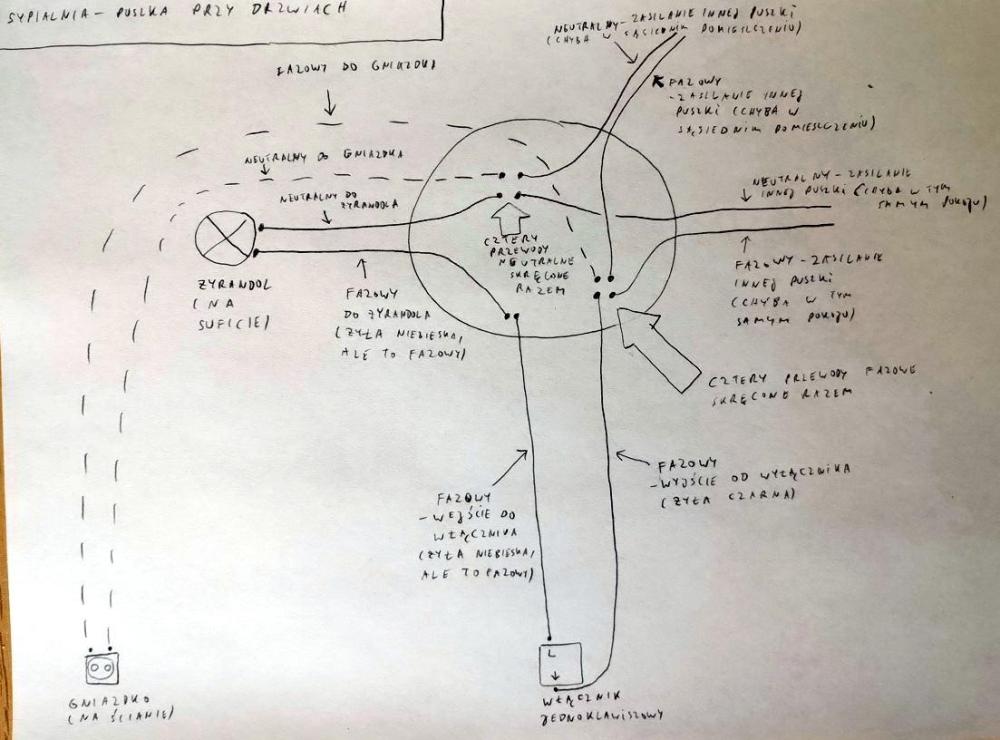 SYPIALNIA - PUSZKA PRZY DRZWIACH
NEUTRALNY - ZASILANIE INNEJ PUSZKI
(CHYBA W SĄSIEDNIM POMIESZCZENIU)
FAZOWY DO GNIAZDKA
FAZOWY
- ZASILANIE INNEJ
PUSZKI (CHYBA W
SĄSIEDNIM POMIESZCZENIU)
NEUTRALNY DO GNIAZDKA
NEUTRALNY DO
ŻYRANDOLA
NEUTRALNY - ZASILANIE
INNEJ PUSZKI (CHYBA W TYM
SAMYM POKOJU)
CZTERY
PRZEWODY
NEUTRALNE
SKRĘCONE
RAZEM
ŻYRANDOL
(NA
SUFICIE)
FAZOWY
DO ŻYRANDOLA
(ŻYŁA NIEBIESKA,
ALE TO FAZOWY)
FAZOWY - ZASILANIE
INNEJ PUSZKI
(CHYBA W TYM
SAMYM POKOJU)
CZTERY PRZEWODY FAZOWE
SKRĘCONE RAZEM
FAZOWY
- WYJŚCIE OD WYŁĄCZNIKA
(ŻYŁA CZARNA)
FAZOWY
- WEJŚCIE DO
WŁĄCZNIKA
(ŻYŁA NIEBIESKA,
ALE TO FAZOWY)
L
GNIAZDKO
(NA ŚCIANIE)
WŁĄCZNIK
JEDNOKLAWISZOWY